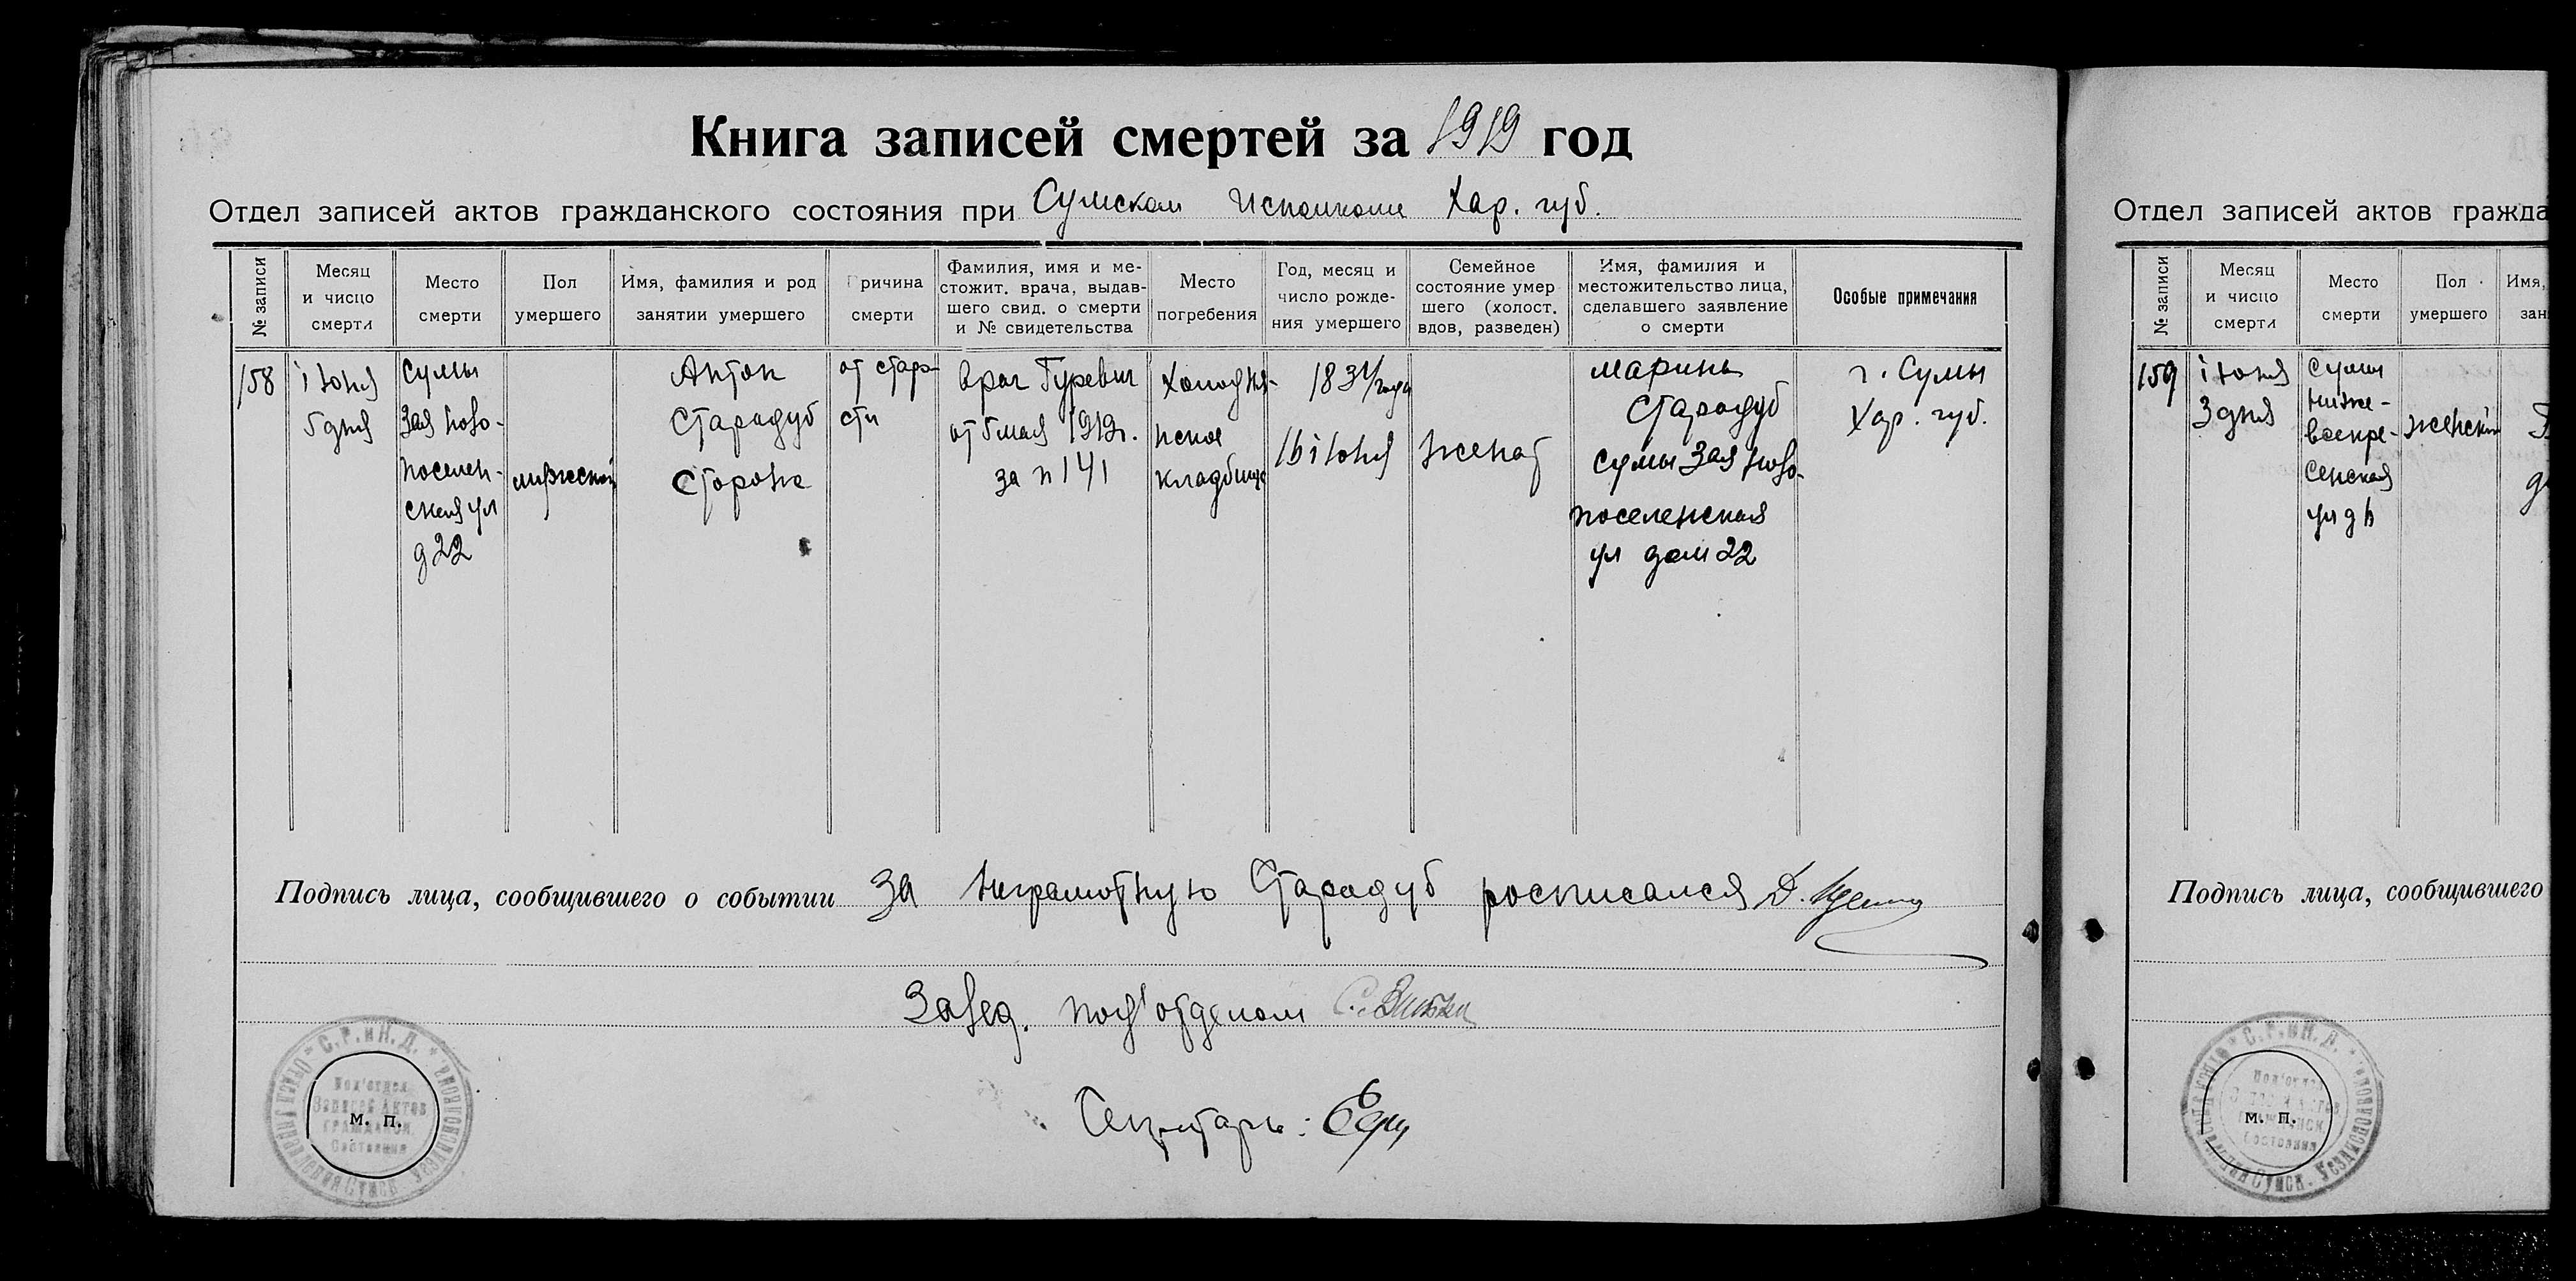 Книга записей смертей за 1919 год
Отдел записей актов гражданского состояния при Сумском Исполкоме Хар. губ.
№ записи
Месяц
и число
смерти
Место
смерти
Пол
умершего
Имя, фамилия и род
занятии умершего
Причина
смерти
Фамилия, имя и ме-
стожит. врача, выдав-
шего свид. о смерти
и № свидетельства
Место
погребения
Год, месяц и
число рожде-
ния умершего
Семейное
состояние умер
шего (холост.
вдов, разведен)
Имя, фамилия и
местожительство лица,
сделавшего заявление
о смерти
Особые примечания
158
іюня
5 дня
Сумы
3ая ново-
поселен-
ская ул
д 22
мужеской
Антон
Стародуб
Сторож
от старо
сти
врач Гуревич
от 5 мая 1919г.
за n 141
Холодня-
нское
кладбище
1831/года
16 іюня
женат
марина
Стародуб
Сумы 3ая ново-
поселенская
ул дом 22
г. Сумы
Хар. губ.
Подпись лица, сообщившего о событии За неграмотную Стародуб росписался Д.
Завед. под'отделом
Секретарь:
С. Р. и К. Д.
Под'отдел
Записей Актов
Гражданск.
Состояния
м. п.
Отдел записей актов гражда
№ записи
Месяц
и число
смерти
Место
смерти
Пол
умершего
Имя,
зан
159
іюня
3 дня
Сумы
ниже-
воскре-
сенская
ул д 6
женский
Подпись лица, сообщившего
С. Р. и К. Д.
Под'отдел
Состояния
м. п.